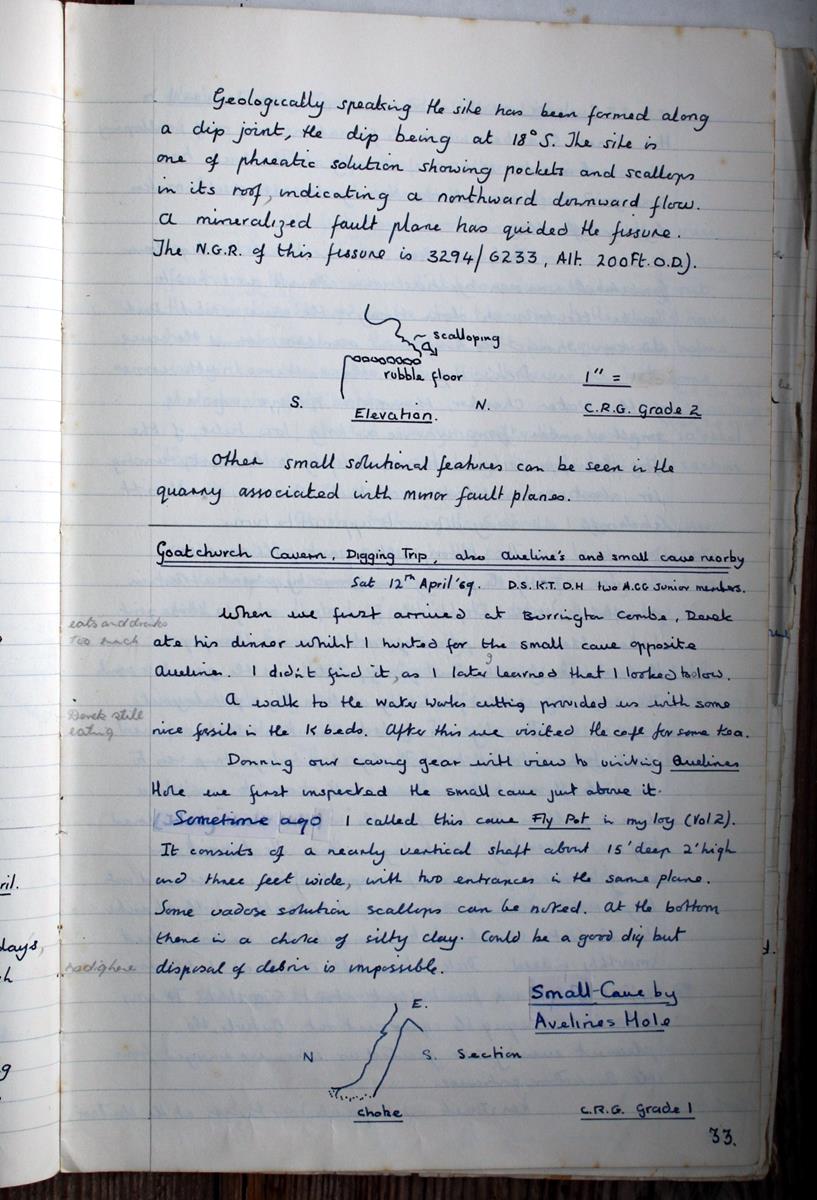 Geologically speaking the site has been formed along
a dip joint, the dip being at 18° S. The site is
one of phreatic solution showing pockets and scallops
in its roof, indicating a northward downward flow.
A mineralized fault plane has guided the fissure.
The N.G.R. of this fissure is 3294/6233, Alt. 200Ft. O.D.).
scalloping
rubble floor
1" =
S. Elevation. N. C.R.G. Grade 2
Other small solutional features can be seen in the
quarry associated with minor fault planes.
Goatchurch Cavern, Digging Trip, also Aveline's and small cave nearby
Sat 12th April '69. D.S. K.T. D.H two A.CG Junior members.
When we first arrived at Burrington Combe, Derek
eats and drinks
too much
ate his dinner whilst I hunted for the small cave opposite
Avelines. I didn't find it, as I later learned that I looked to low.
A walk to the water works cutting provided us with some
Derek still
eating
nice fossils in the K beds. After this we visited the cafe for some tea.
Donning our caving gear with view to visiting Avelines
Hole we first inspected the small cave just above it.
(Sometime ago I called this cave Fly Pot in my log (Vol 2).
It consists of a nearly vertical shaft about 15' deep 2' high
and three feet wide, with two entrances in the same plane.
Some vadose solution scallops can be noted. At the bottom
there is a choke of silty clay. Could be a good dig but
disposal of debris is impossible.
E.
Small Cave by
Avelines Hole
N S. Section
choke
C.R.G. Grade 1
33.
ril.
days,